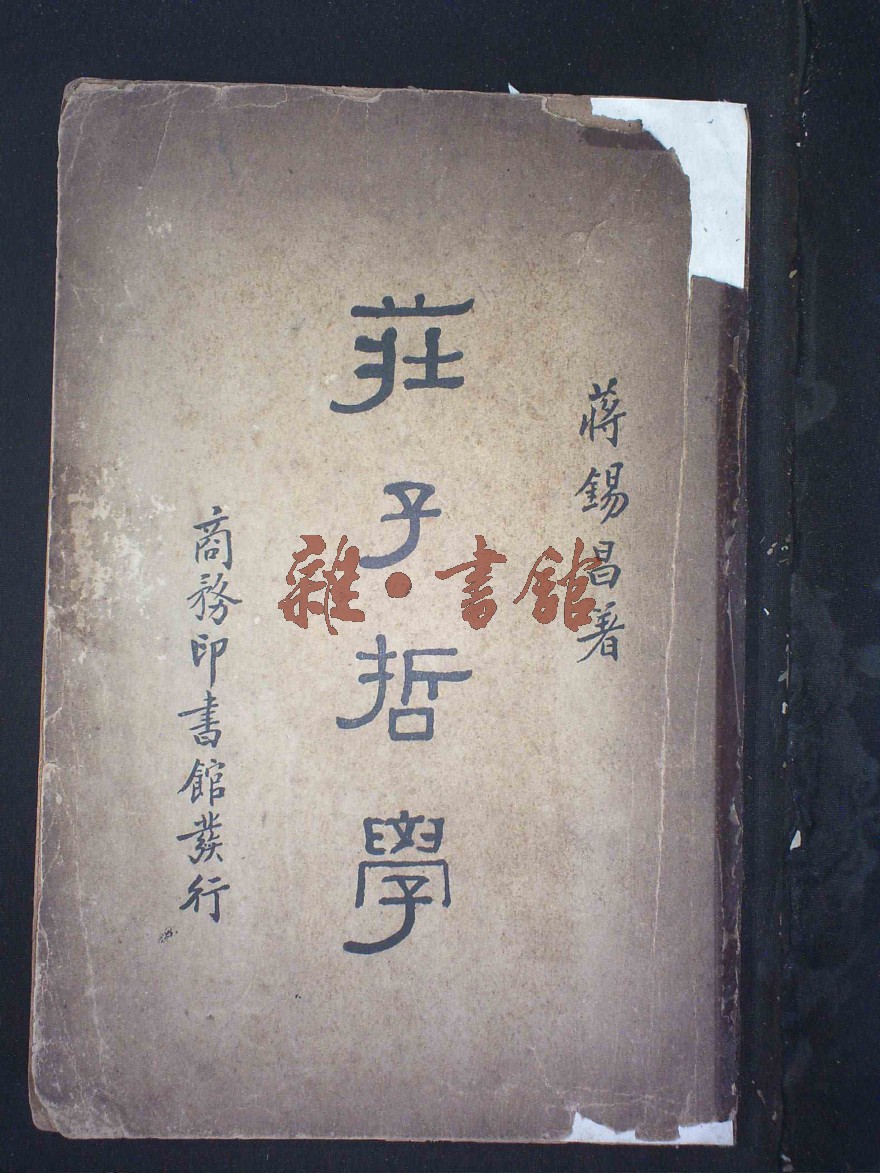 蔣錫昌著
莊子哲學
商務印書館發行
雜·書館